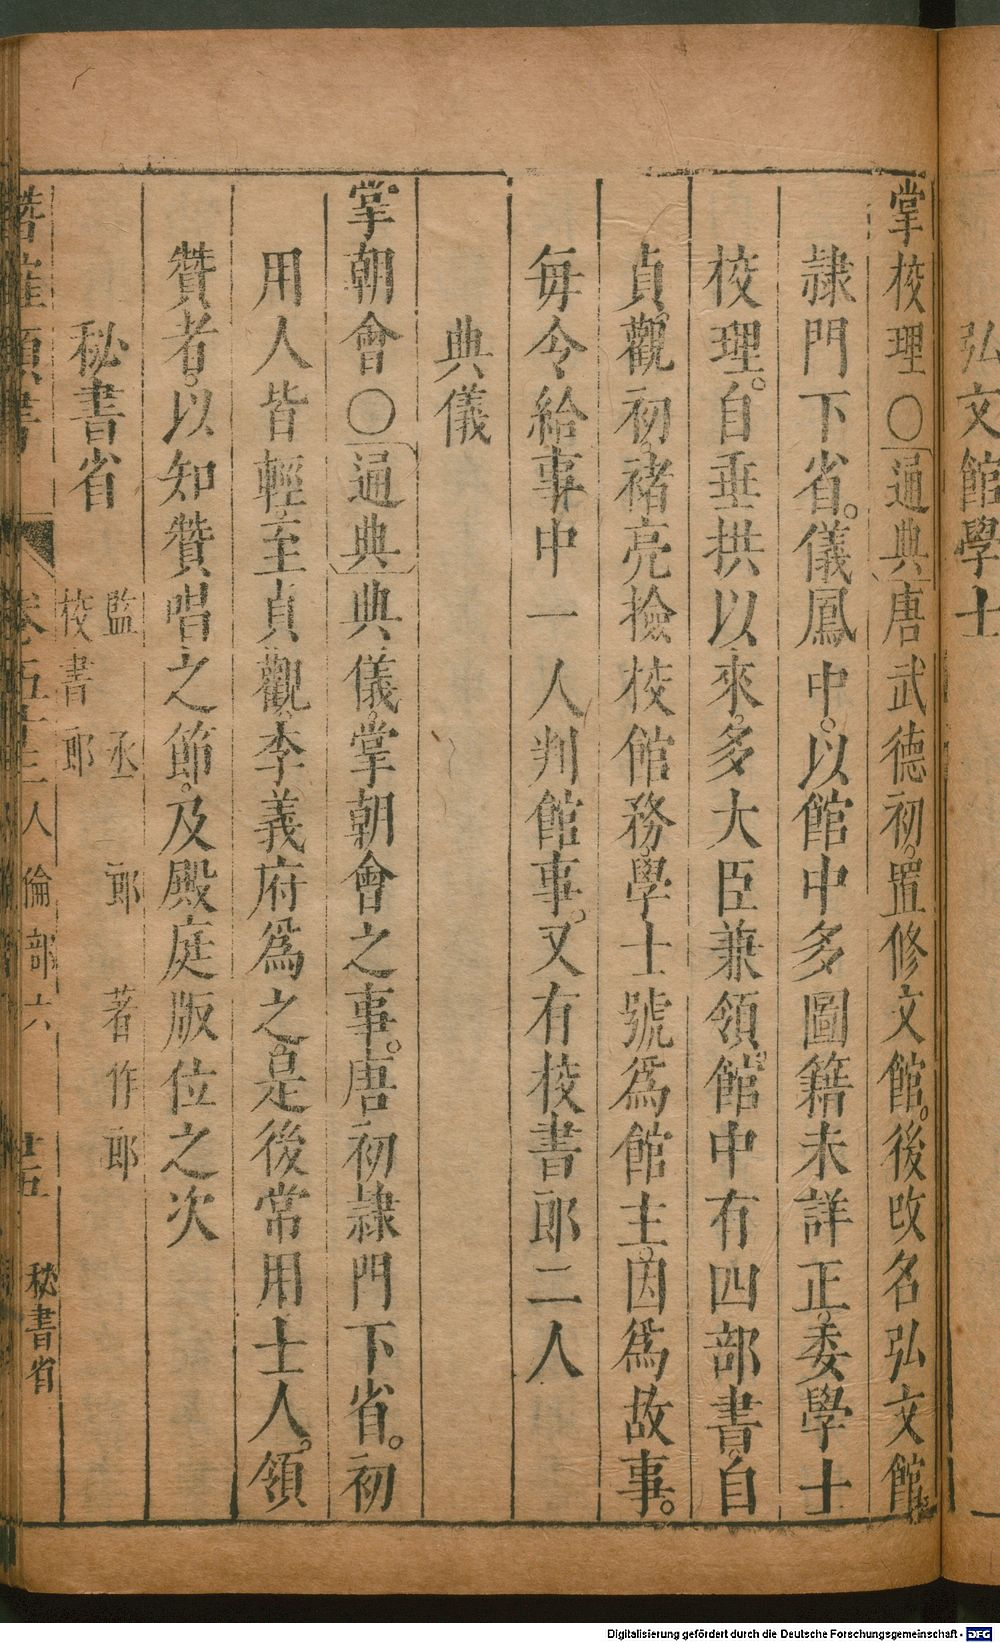 弘文館學士
掌校理○通典唐武德初。置修文館。後改名弘文館
隷門下省。儀鳳中。以館中多圖籍未詳正。委學士
校理。自垂拱以來。多大臣兼領。館中有四部書。自
貞觀初。禇亮撿校館務。學士號爲館主。因爲故事。
毎令給事中一人判館事。又有校書郎二人
典儀
掌朝會○通典典儀。掌朝會之事。唐初隷門下省。初
用人皆輕。至貞觀。李義府爲之。是後常用士人。領
贊者。以知贊唱之節。及殿庭版位之次
秘書省 監 丞 郎 著作郎
校書郎
卷五十三人倫部六 廿五 秘書省
Digitalisierung gefördert durch die Deutsche Forschungsgemeinschaft - DFG